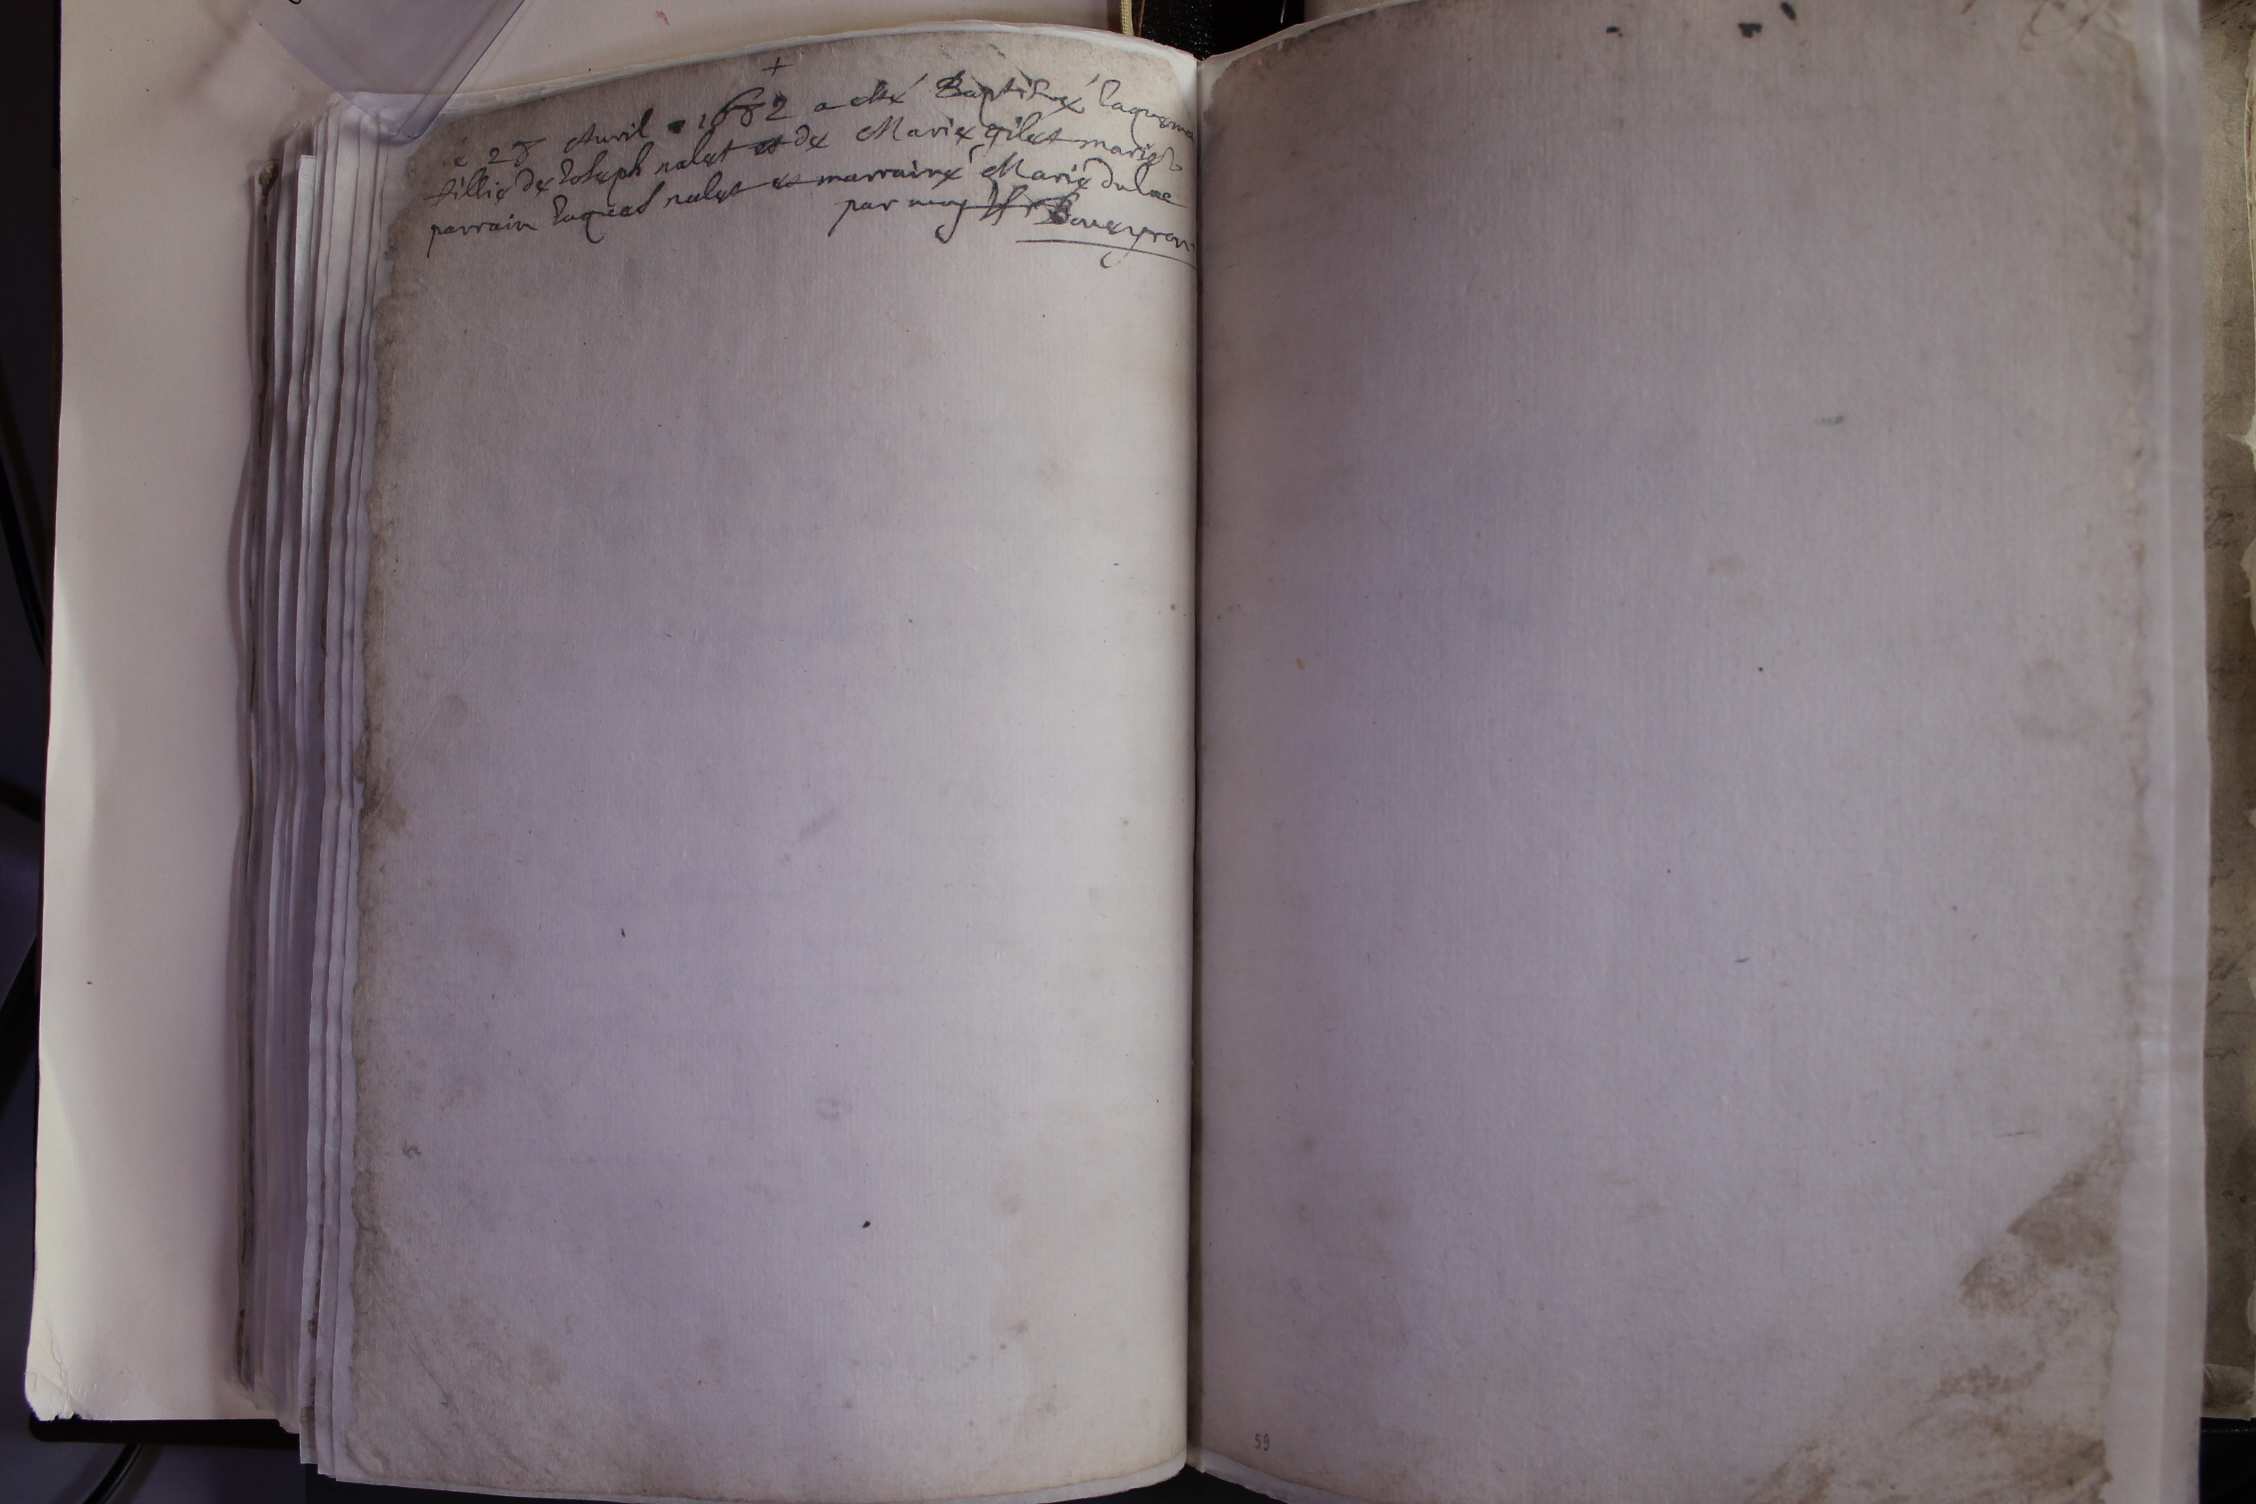 +
le 28 Auril 1682 a esté Baptisée Iaquema
fillie de Ioseph nalet et de Marie gilet mariés
parrain Iaques nalet et marraine Marie dulac
par moy
59